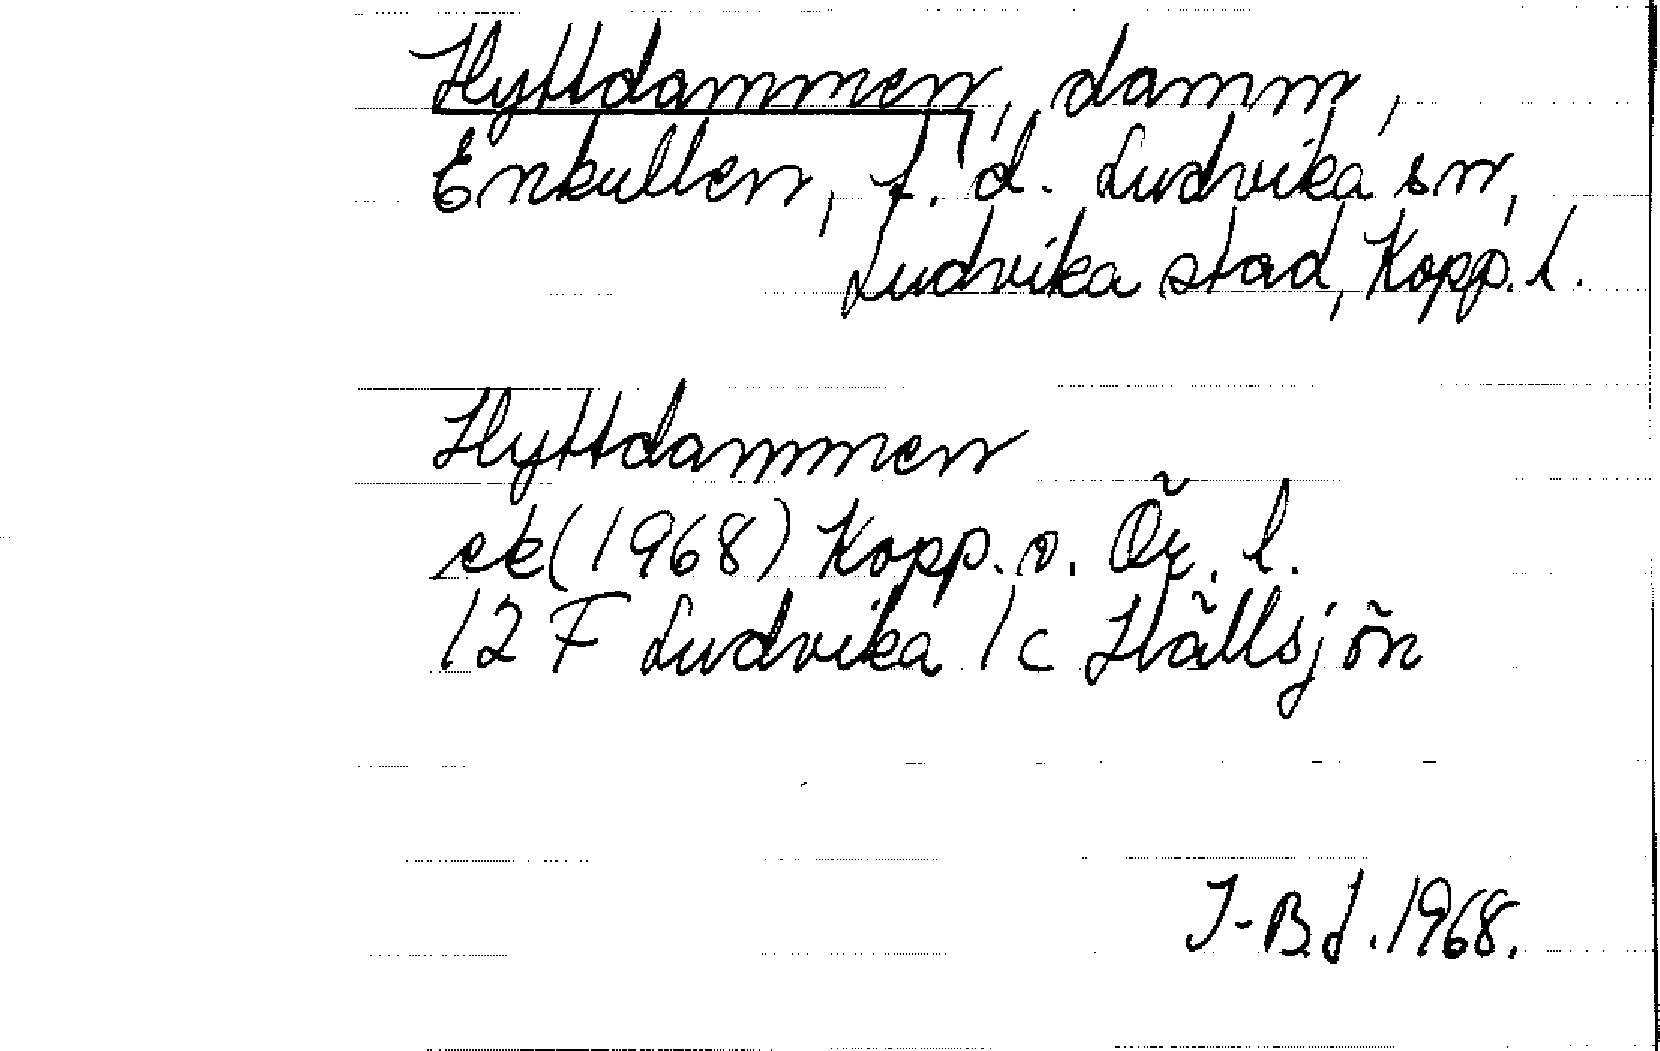 Hyttdammen, damm,
Enkullen, f. d. Ludvika sn,
Ludvika stad, Kopp. l.
Hyttdammen
ek (1968) Kopp. o. Ör. l.
12 F Ludvika 1 c Hällsjön
I-B.d. 1968.